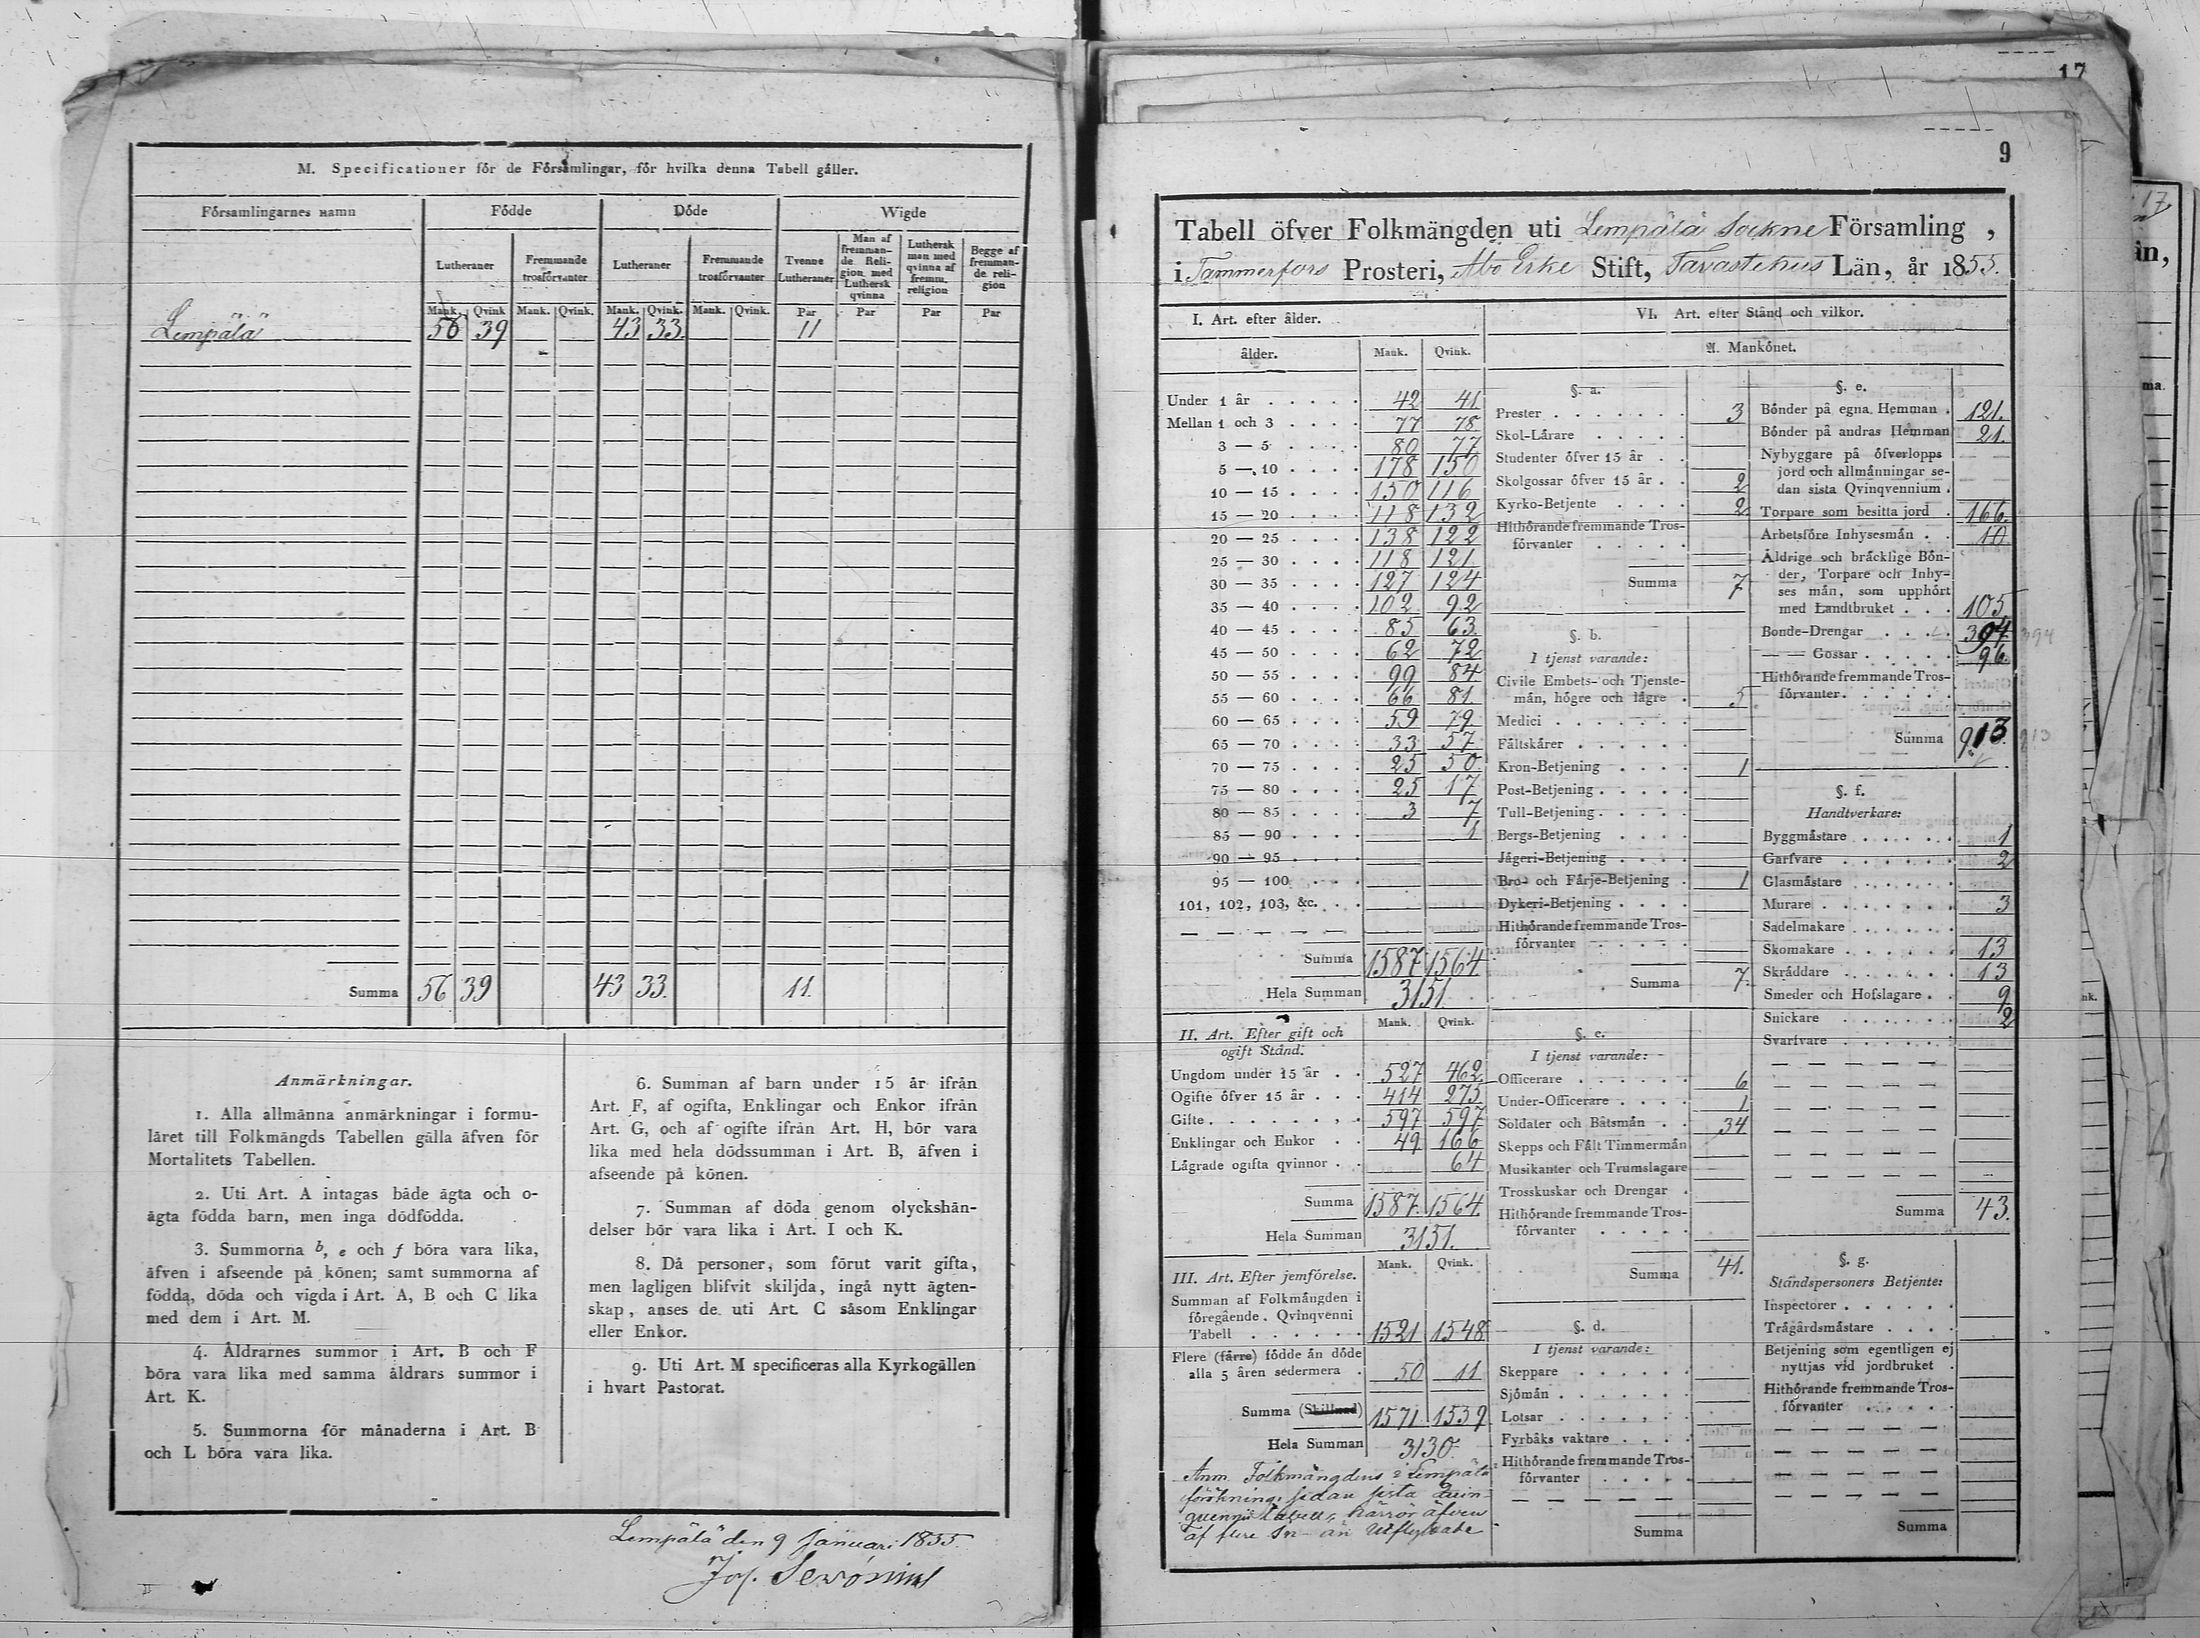 M. Specificationer för de Församlingar, för hvilka denna Tabell gäller.
Församlingarnes namn | Födde | Döde | Wigde
Lutheraner | Fremmande trosförvanter | Lutheraner | Fremmande trosförvanter | Tvenne Lutheraner | Man af fremmande Religion med Luthersk qvinna | Luthersk man med qvinna af fremm. religion | Begge af fremmande religion
Mank. | Qvink | Mank. | Qvink. | Mank. | Qvink. | Mank. | Qvink. | Par | Par | Par | Par
Lempälä 56 39 43 33. 11
Summa 56 39 43 33. 11.
Anmärkningar.
1. Alla allmänna anmärkningar i formu-
läret till Folkmängds Tabellen gälla äfven för
Mortalitets Tabellen.
2. Uti Art. A intagas både ägta och o-
ägta födda barn, men inga dödfödda.
3. Summorna b, e och f böra vara lika,
äfven i afseende på könen; samt summorna af
födda, döda och vigda i Art. A, B och C lika
med dem i Art. M.
4. Åldrarnes summor i Art. B och F
böra vara lika med samma åldrars summor i
Art. K.
5. Summorna för månaderna i Art. B
och L böra vara lika.
6. Summan af barn under 15 år ifrån
Art. F, af ogifta, Enklingar och Enkor ifrån
Art. G, och af ogifte ifrån Art. H, bör vara
lika med hela dödssumman i Art. B, äfven i
afseende på könen.
7. Summan af döda genom olyckshän-
delser bör vara lika i Art. I och K.
8. Då personer, som förut varit gifta,
men lagligen blifvit skiljda, ingå nytt ägten-
skap, anses de uti Art. C såsom Enklingar
eller Enkor.
9. Uti Art. M specificeras alla Kyrkogällen
i hvart Pastorat.
Lempälä den 9 Januari 1855.
Jos.
17
9
Tabell öfver Folkmängden uti Lempälä Sockne Församling,
i Tammerfors Prosteri, Åbo Erke Stift, Tavastehus Län, år 1855.
I. Art. efter ålder.
ålder. Mank. Qvink.
Under 1 år 42 41
Mellan 1 och 3 77 78
3 — 5 80 77
5 — 10 178 150
10 — 15 150 116
15 — 20 118 132
20 — 25 138 122
25 — 30 118 121
30 — 35 127 124
35 — 40 102 92
40 — 45 85 63
45 — 50 62 72
50 — 55 99 84
55 — 60 66 81
60 — 65 59 79
65 — 70 33 57
70 — 75 25 50
75 — 80 25 17
80 — 85 3 7
85 — 90 1
90 — 95
95 — 100
101, 102, 103, &c.
Summa 1587 1564
Hela Summan 3151
II. Art. Efter gift och
ogift Stånd.
Mank. Qvink.
Ungdom under 15 år 527 462
Ogifte öfver 15 år 414 275
Gifte 597 597
Enklingar och Enkor 49 166
Lägrade ogifta qvinnor 64
Summa 1587 1564
Hela Summan 3151.
III. Art. Efter jemförelse.
Mank. Qvink.
Summan af Folkmängden i
föregående Qvinqvenni
Tabell 1521 1548
Flere (färre) födde än döde
alla 5 åren sedermera 50 11
Summa (Skillnad) 1571 1539
Hela Summan 3130
Anm. Folkmängdens i Lempälä
förökning, sedan sista Quin-
quennii Tabell, härrör äfven
af flere In- än Utflyttade
VI. Art. efter Stånd och vilkor.
A. Mankönet.
§. a.
Prester 3
Skol-Lärare
Studenter öfver 15 år
Skolgossar öfver 15 år 2
Kyrko-Betjente 2
Hithörande fremmande Tros-
förvanter
Summa 7
§. b.
I tjenst varande:
Civile Embets- och Tjenste-
män, högre och lägre 5
Medici
Fältskärer
Kron-Betjening 1
Post-Betjening
Tull-Betjening
Bergs-Betjening
Jägeri-Betjening
Bro- och Färje-Betjening 1
Dykeri-Betjening
Hithörande fremmande Tros-
förvanter
Summa 7.
§. c.
I tjenst varande:
Officerare 6
Under-Officerare 1
Soldater och Båtsmän 34
Skepps och Fält Timmermän
Musikanter och Trumslagare
Trosskuskar och Drengar
Hithörande fremmande Tros-
förvanter
Summa 41.
§. d.
I tjenst varande:
Skeppare
Sjömän
Lotsar
Fyrbåks vaktare
Hithörande fremmande Tros-
förvanter
Summa
§. e.
Bönder på egna Hemman 121.
Bönder på andras Hemman 21.
Nybyggare på öfverlopps
jord och allmänningar se-
dan sista Qvinqvennium
Torpare som besitta jord 166.
Arbetsföre Inhysesmän 10.
Åldrige och bräcklige Bön-
der, Torpare och Inhy-
ses män, som upphört
med Landtbruket 105
Bonde-Drengar 394 394
— — Gossar 96.
Hithörande fremmande Tros-
förvanter
Summa 913 913
§. f.
Handtverkare:
Byggmästare 1
Garfvare 2
Glasmästare
Murare 3
Sadelmakare
Skomakare 13
Skräddare 13
Smeder och Hofslagare 9
Snickare 2
Svarfvare
Summa 43.
§. g.
Ståndspersoners Betjente:
Inspectorer
Trägårdsmästare
Betjening som egentligen ej
nyttjas vid jordbruket
Hithörande fremmande Tros-
förvanter
Summa